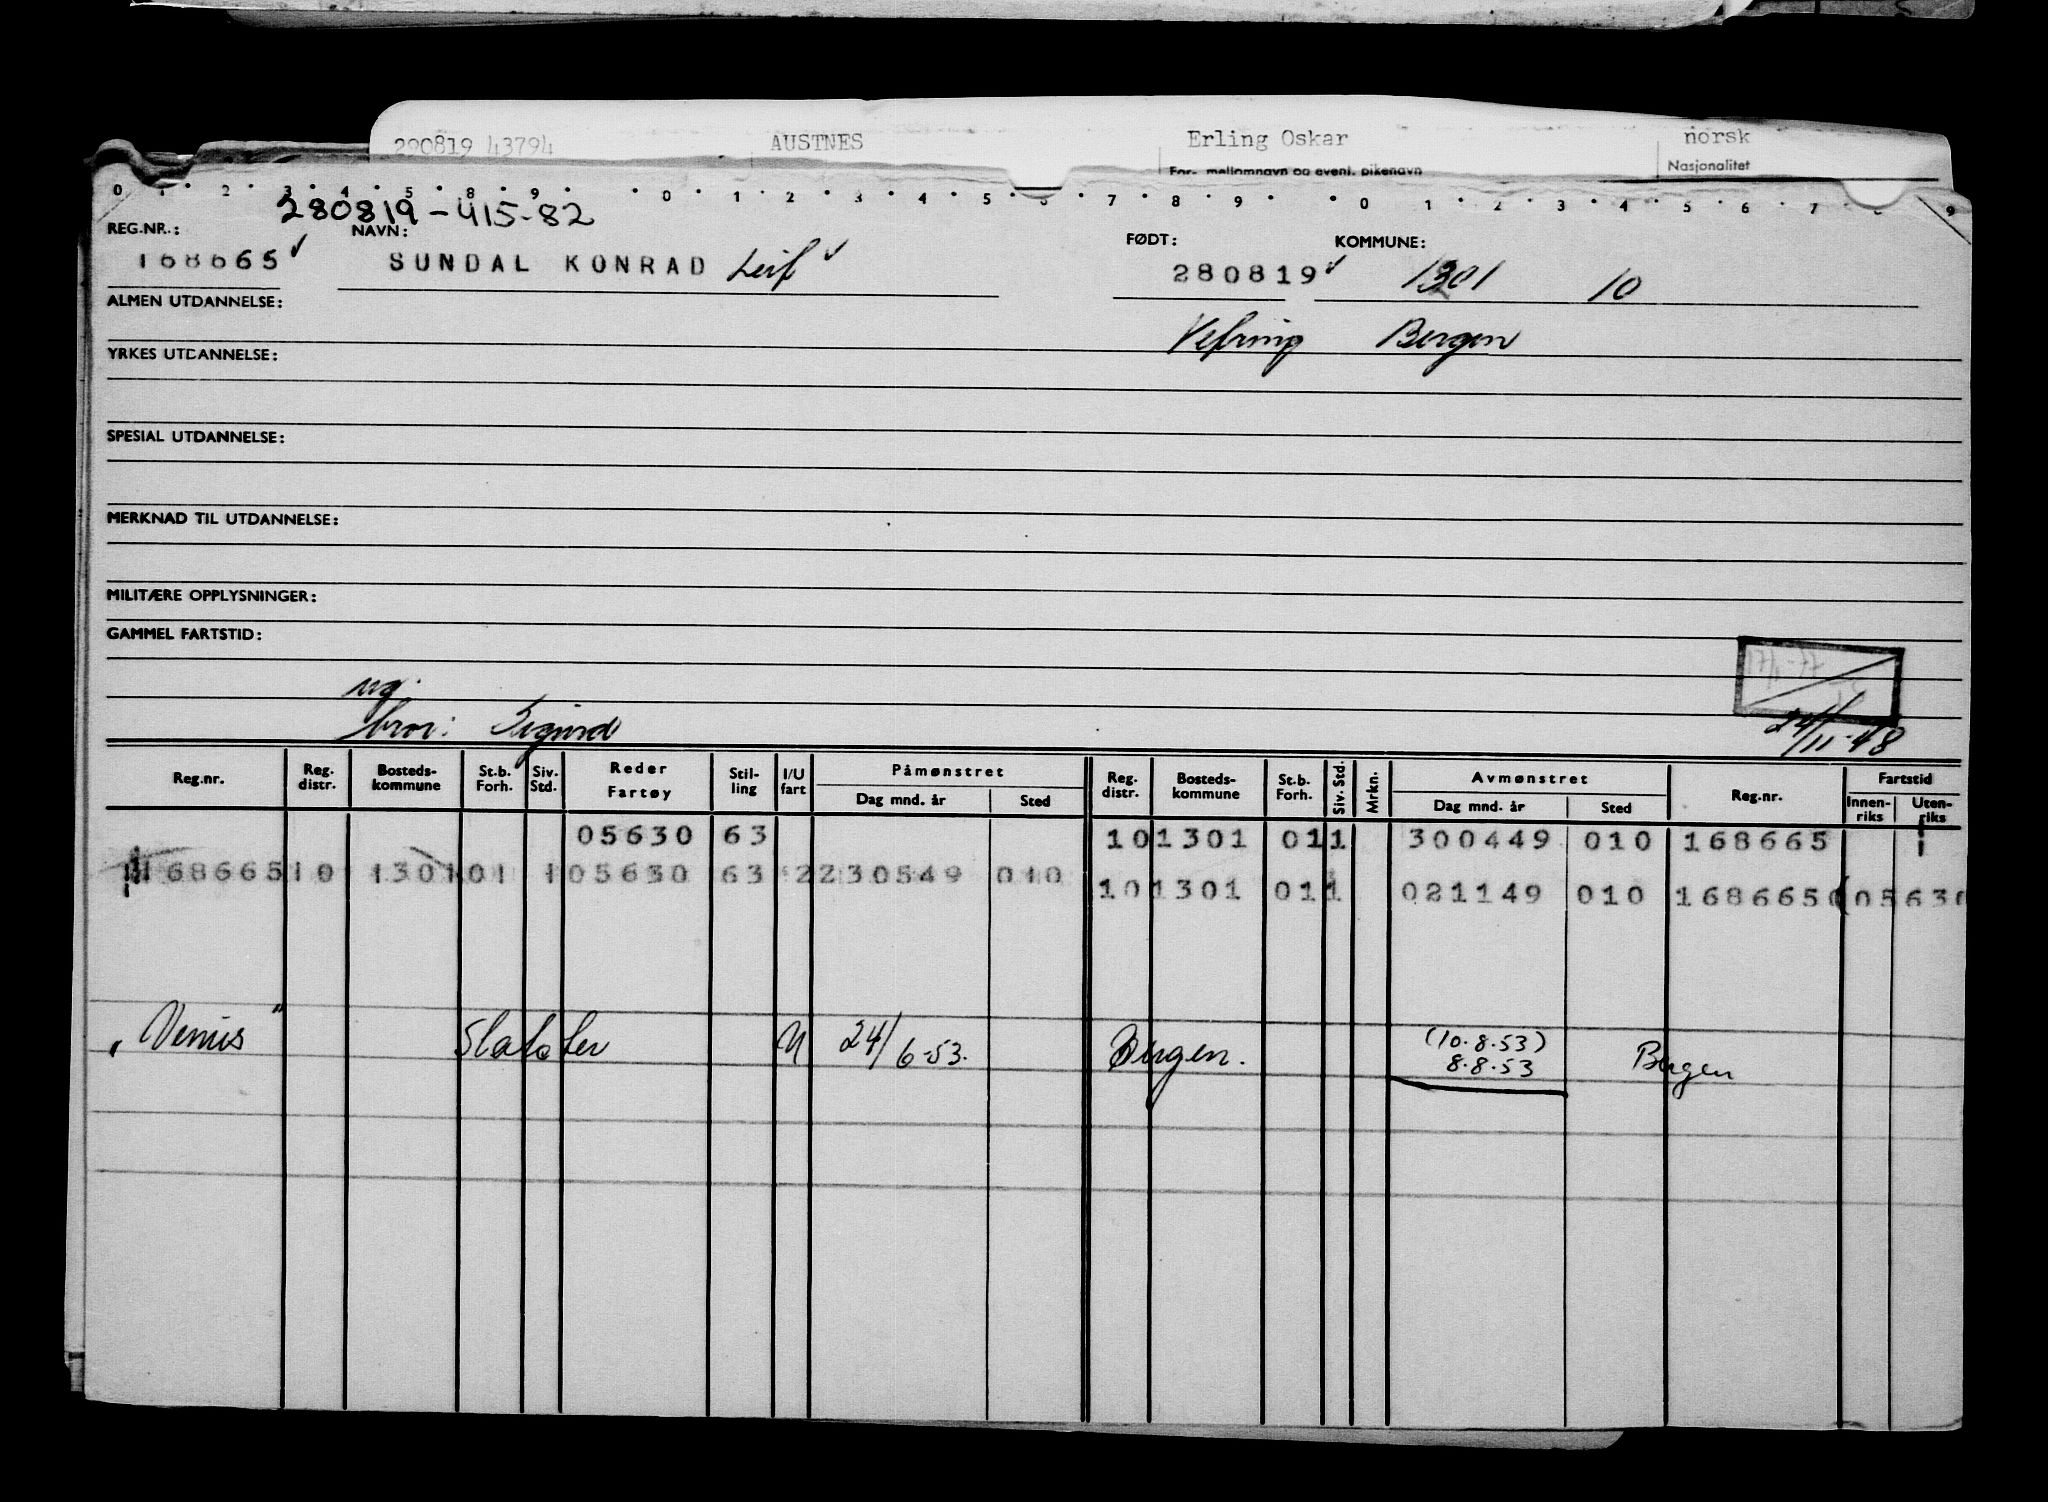 290819 43794 AUSTNES Erling Oskar norsk
For-, mellomnavn og event. pikenavn Nasjonalitet
0 1 2 3 4 5 8 9 0 1 2 3 4 5 6 7 8 9 0 1 2 3 4 5 6 7 8 9
280819-415-82
REG.NR.: NAVN: FØDT: KOMMUNE:
168665 SUNDAL KONRAD Leif 280819 1301 10
ALMEN UTDANNELSE:
Vefring Bergen
YRKES UTDANNELSE:
SPESIAL UTDANNELSE:
MERKNAD TIL UTDANNELSE:
MILITÆRE OPPLYSNINGER:
GAMMEL FARTSTID:
ug.
bror: Sigurd
24/11-48
Reg.nr. Reg. distr. Bosteds-kommune St.b. Forh. Siv. Std. Reder Fartøy Stil-ling I/U fart Påmønstret Dag mnd. år Sted Reg. distr. Bosteds-kommune St.b. Forh. Siv. Std. Mrkn. Avmønstret Dag mnd. år Sted Reg.nr. Fartstid Innen-riks Uten-riks
05630 63 10 1301 01 1 300449 010 168665
168665 10 1301 01 1 05630 63 2 230549 010 10 1301 01 1 021149 010 168665 05630
"Venus" Slakter U 24/6-53. Bergen. (10.8.53)
8.8.53 Bergen